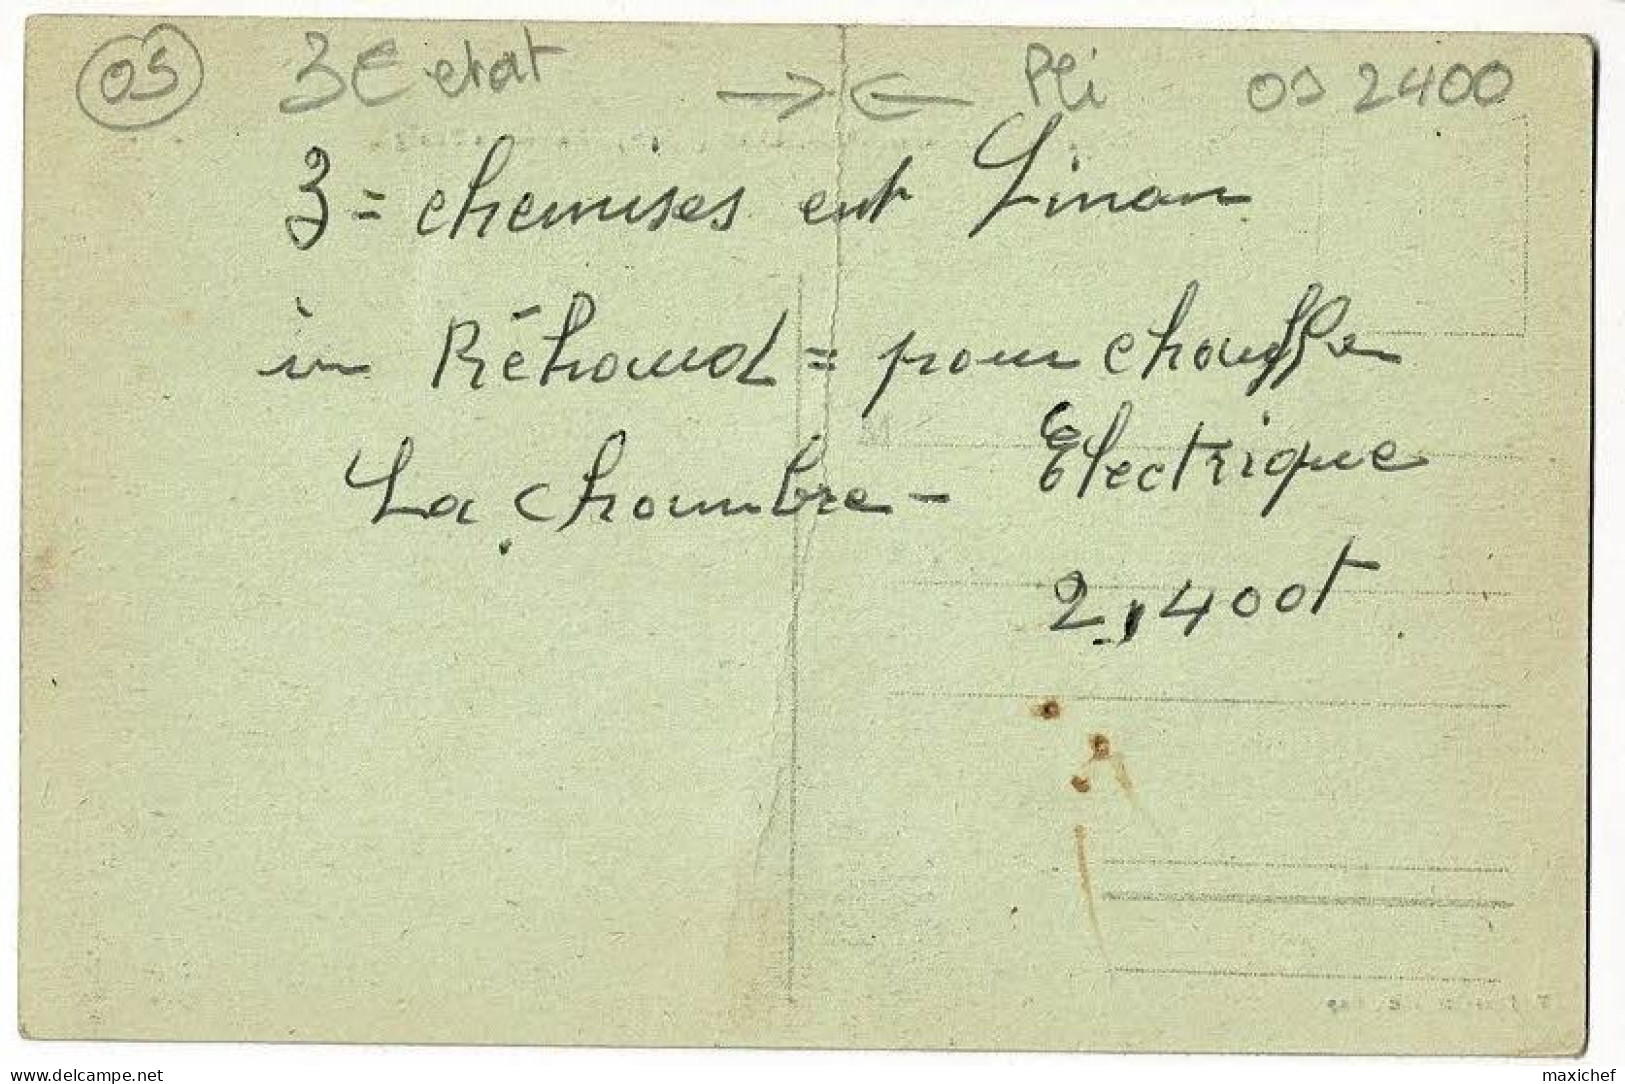 05 3€ etat → ← Pli 05 2400
3 = chemises ent Linon
in Réhaud = pour chauffe
La chambre - Electrique
2,400t
www.delcampe.net
maxichef